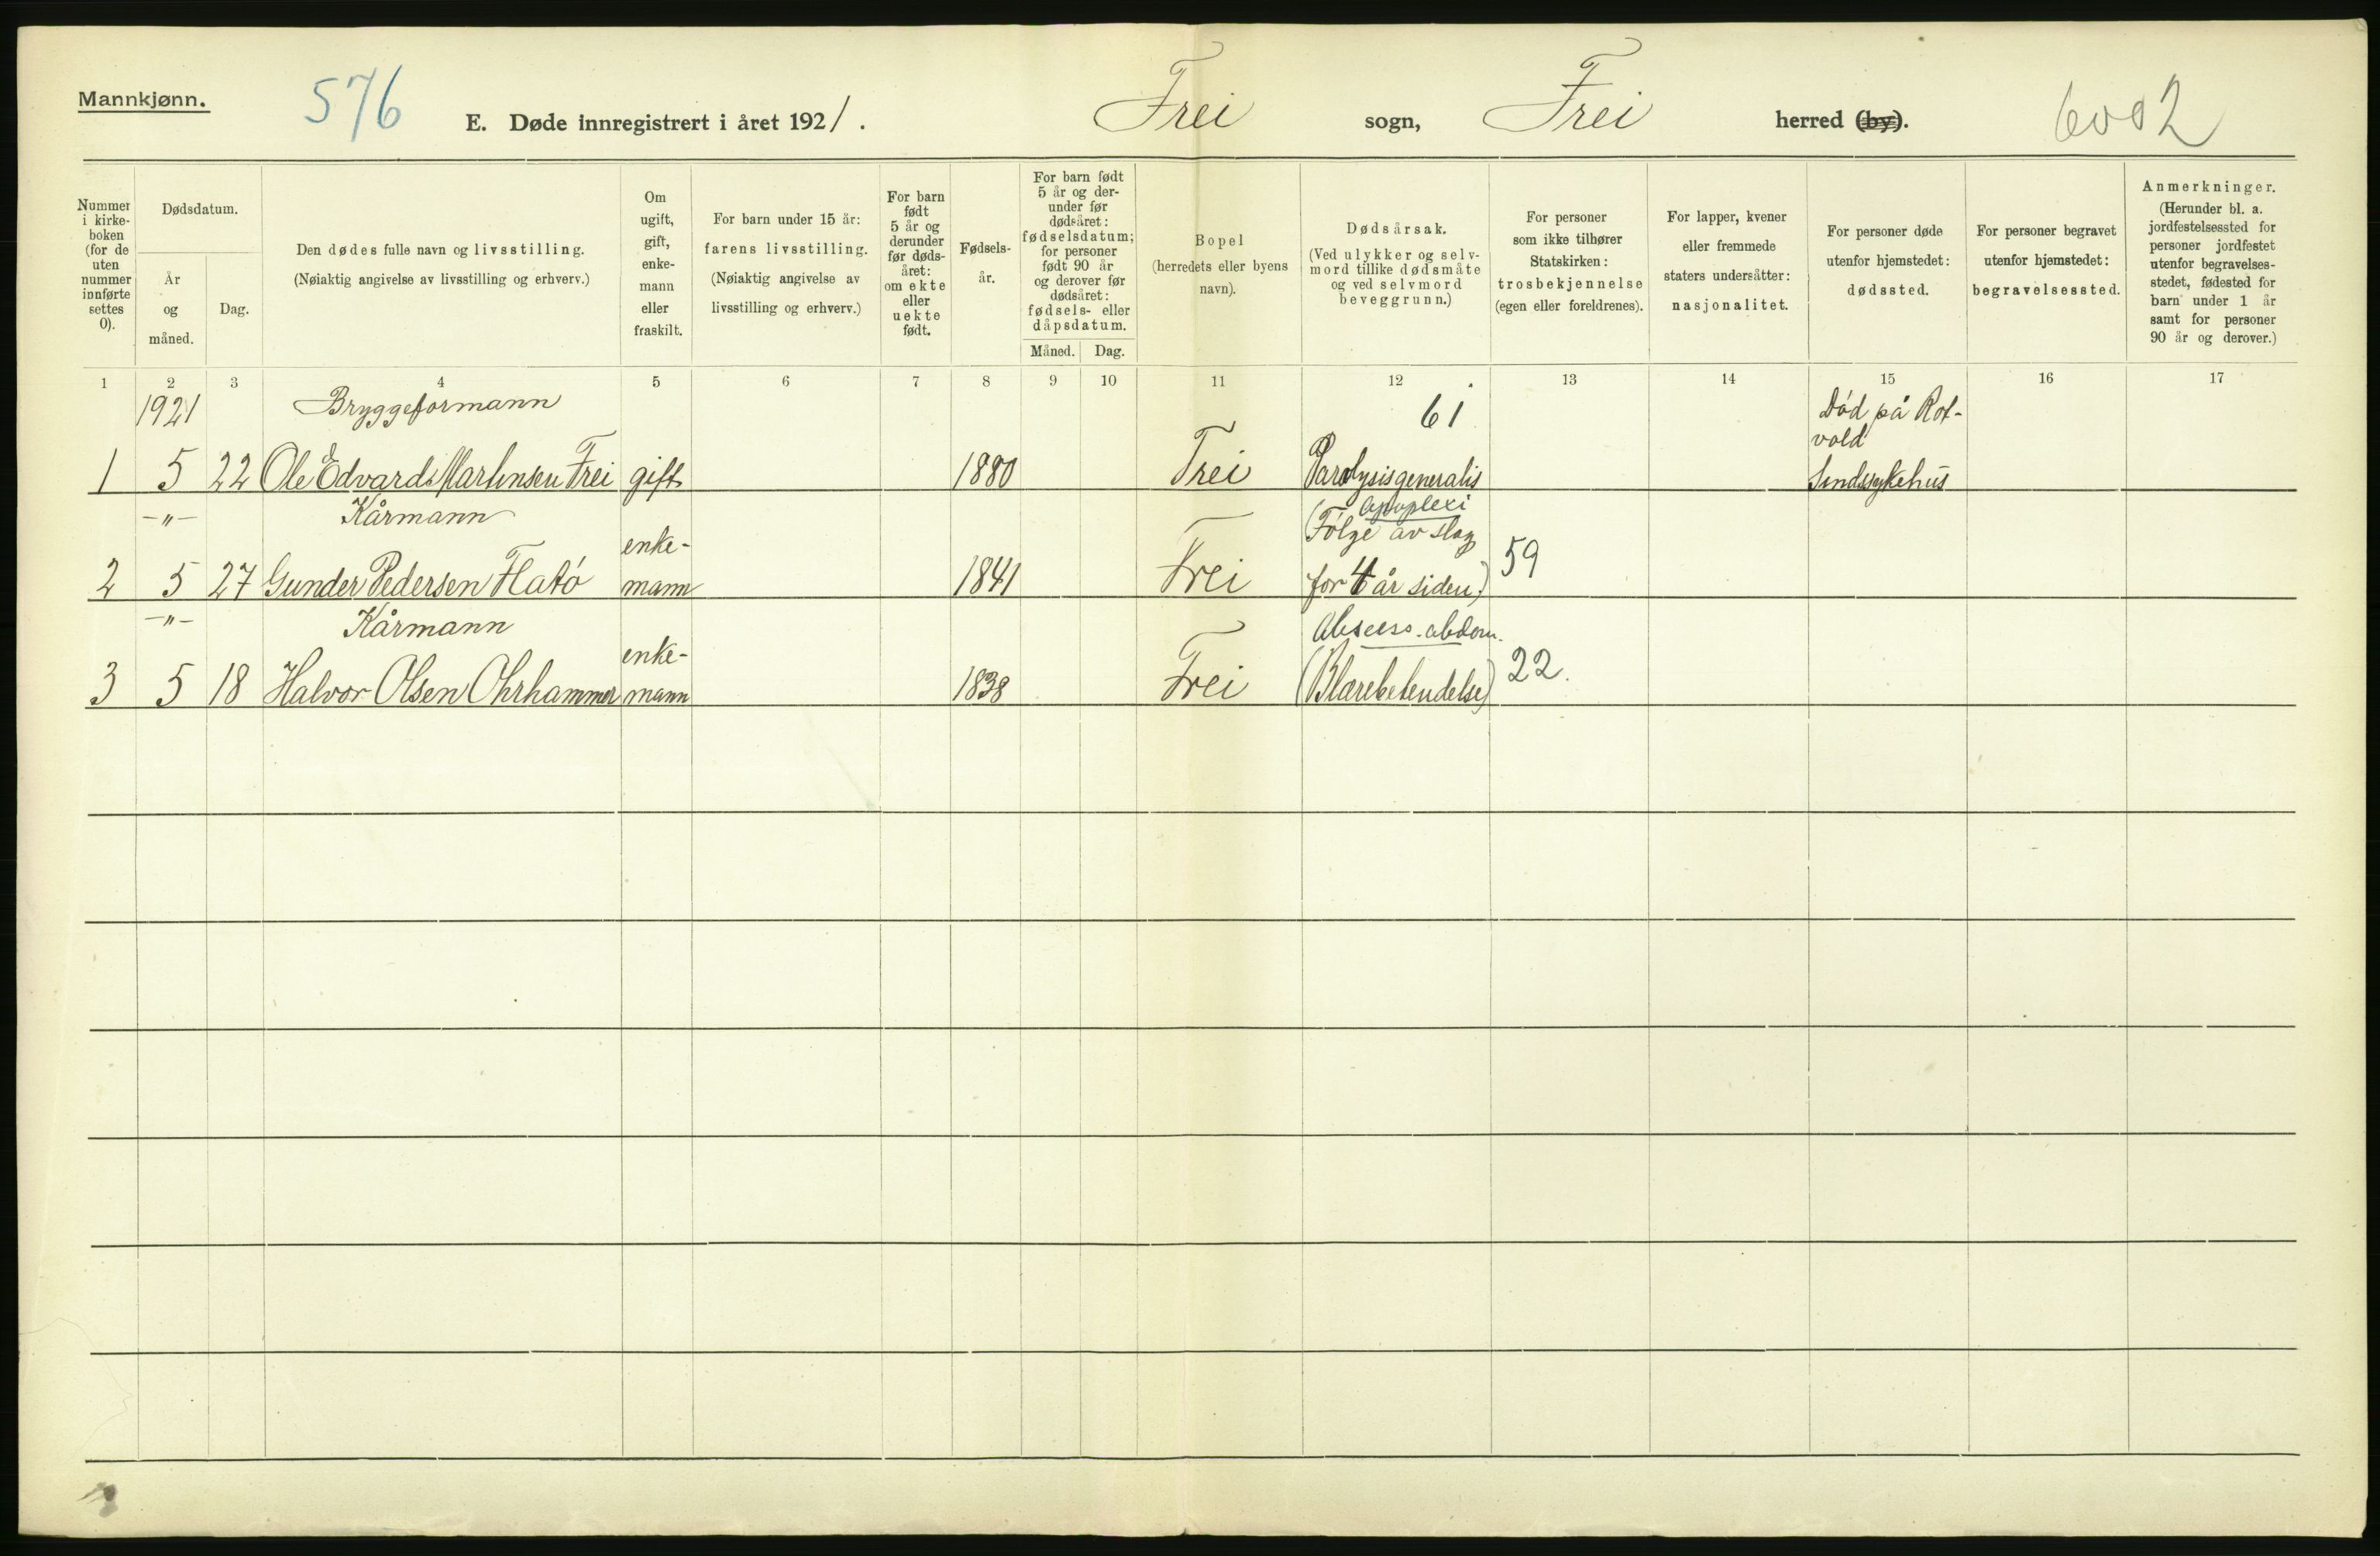 Mannkjønn.
576
E. Døde innregistrert i året 1921.
Frei sogn, Frei herred (by).
6002
Nummer i kirke-boken (for de uten nummer innførte settes 0).
Dødsdatum.
År og måned.
Dag.
Den dødes fulle navn og livsstilling.
(Nøiaktig angivelse av livsstilling og erhverv.)
Om ugift, gift, enke-mann eller fraskilt.
For barn under 15 år:
farens livsstilling.
(Nøiaktig angivelse av livsstilling og erhverv.)
For barn født 5 år og derunder før døds-året: om ekte eller uekte født.
Fødsels-år.
For barn født 5 år og der-under før dødsåret: fødselsdatum; for personer født 90 år og derover før dødsåret: fødsels- eller dåpsdatum.
Måned. Dag.
Bopel
(herredets eller byens navn).
Dødsårsak.
(Ved ulykker og selv-mord tillike dødsmåte og ved selvmord beveggrunn.)
For personer som ikke tilhører Statskirken: trosbekjennelse (egen eller foreldrenes).
For lapper, kvener eller fremmede staters undersåtter: nasjonalitet.
For personer døde utenfor hjemstedet: dødssted.
For personer begravet utenfor hjemstedet: begravelsessted.
Anmerkninger.
(Herunder bl. a. jordfestelsessted for personer jordfestet utenfor begravelses-stedet, fødested for barn under 1 år samt for personer 90 år og derover.)
1 2 3 4 5 6 7 8 9 10 11 12 13 14 15 16 17
1921 Bryggeformann 61 Død på Rot-
vold
1 5 22 Ole Edvard Martinsen Frei gift 1880 Frei Paralysis generalis Sindssykehus
—"— Kårmann Apoplexi
enke- (Følge av slag
2 5 27 Gunder Pedersen Flatö mann 1841 Frei for 4 år siden) 59
—"— Kårmann Abscess. abdom.
enke-
3 5 18 Halvor Olsen Ohrhammer mann 1838 Frei (Blærebetendelse) 22.